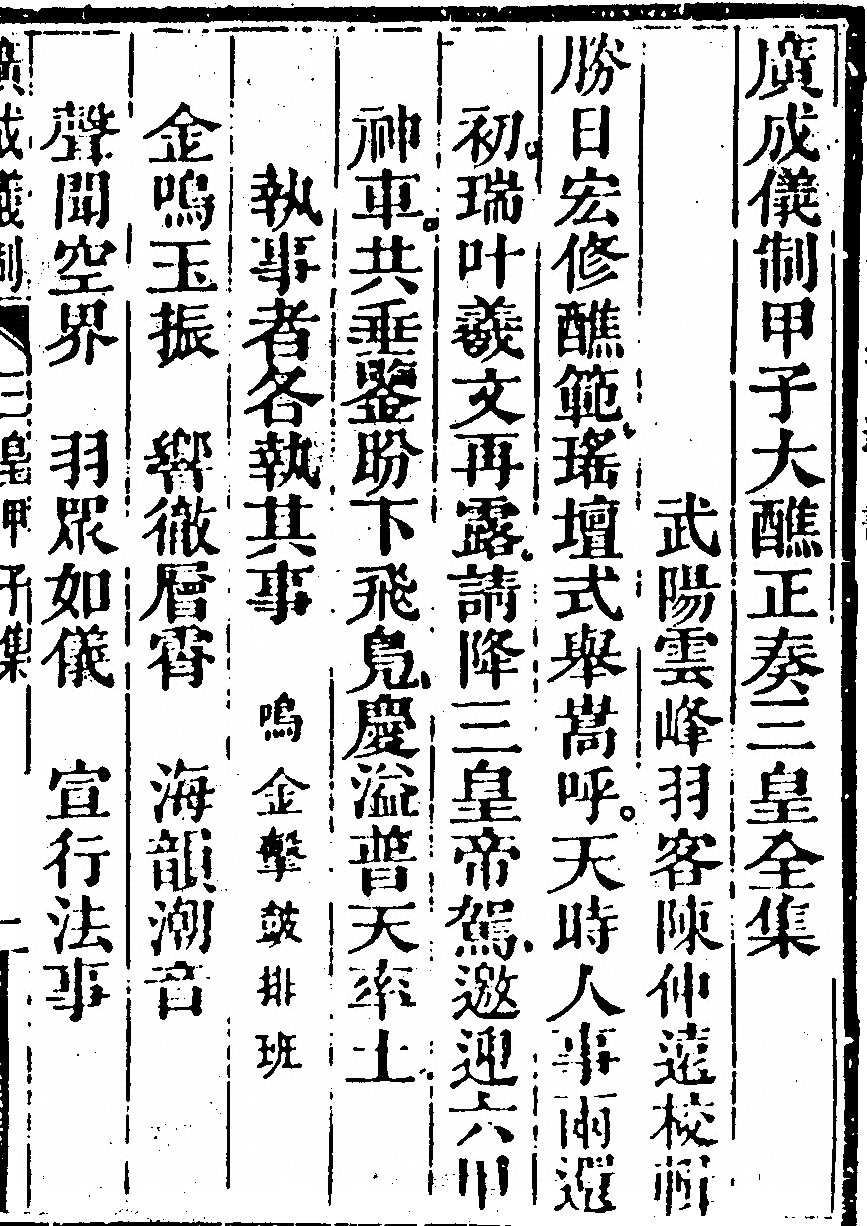 廣成儀制甲子大醮正奏三皇全集
武陽雲峰羽客陳仲遠校輯
勝日宏修醮範瑤壇式舉嵩呼天時人事兩還
初瑞叶羲文再露請降三皇帝駕邀迎六甲
神車共垂鑒盼下飛鳧慶溢普天率土
執事者各執其事 鳴金擊鼓排班
金鳴玉振 響徹層霄 海韻潮音
聲聞空界 羽眾如儀 宣行法事
廣成儀制 三皇甲子集 二